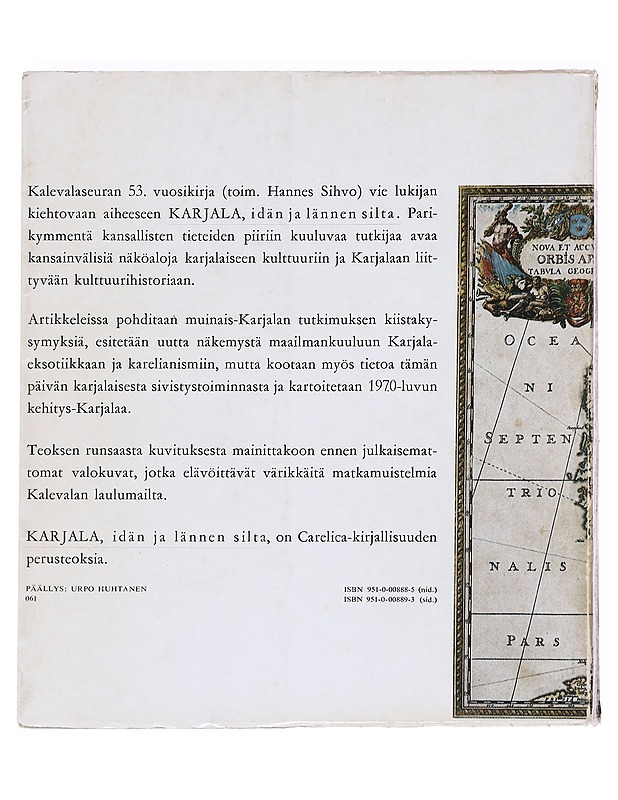 Kalevalaseuran 53. vuosikirja (toim. Hannes Sihvo) vie lukijan
kiehtovaan aiheeseen KARJALA, idän ja lännen silta. Pari-
kymmentä kansallisten tieteiden piiriin kuuluvaa tutkijaa avaa
kansainvälisiä näköaloja karjalaiseen kulttuuriin ja Karjalaan liit-
tyvään kulttuurihistoriaan.
Artikkeleissa pohditaan muinais-Karjalan tutkimuksen kiistaky-
symyksiä, esitetään uutta näkemystä maailmankuuluun Karjala-
eksotiikkaan ja karelianismiin, mutta kootaan myös tietoa tämän
päivän karjalaisesta sivistystoiminnasta ja kartoitetaan 1970-luvun
kehitys-Karjalaa.
Teoksen runsaasta kuvituksesta mainittakoon ennen julkaisemat-
tomat valokuvat, jotka elävöittävät värikkäitä matkamuistelmia
Kalevalan laulumailta.
KARJALA, idän ja lännen silta, on Carelica-kirjallisuuden
perusteoksia.
PÄÄLLYS: URPO HUHTANEN
061
ISBN 951-0-00888-5 (nid.)
ISBN 951-0-00889-3 (sid.)
NOVA ET ACCV
ORBIS AR
TABVLA GEOGR
OCEA
NI
SEPTEN
TRIO
NALIS
PARS